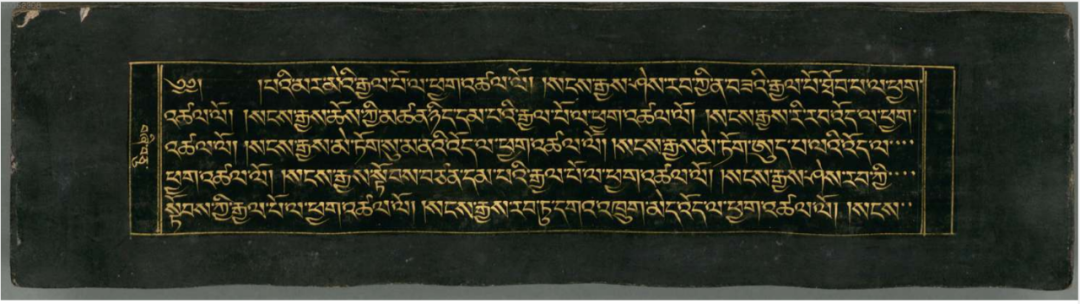 ༄༅། །པའི་མར་མེའི་རྒྱལ་པོ་ལ་ཕྱག་འཚལ་ལོ། །སངས་རྒྱས་ཤེས་རབ་ཀྱི་ན་བཟའི་རྒྱལ་པོ་ཐོབ་པ་ལ་ཕྱག་
འཚལ་ལོ། །སངས་རྒྱས་ཆོས་ཀྱི་མཚན་ཉིད་དམ་པའི་རྒྱལ་པོ་ལ་ཕྱག་འཚལ་ལོ། །སངས་རྒྱས་རི་རབ་འོད་ལ་ཕྱག་
བཞི་བཅུ་
འཚལ་ལོ། །སངས་རྒྱས་མེ་ཏོག་སུ་མ་ནའི་འོད་ལ་ཕྱག་འཚལ་ལོ། །སངས་རྒྱས་མེ་ཏོག་ཨུད་པ་ལའི་འོད་ལ་
ཕྱག་འཚལ་ལོ། །སངས་རྒྱས་སྟོབས་བཙན་དམ་པའི་རྒྱལ་པོ་ལ་ཕྱག་འཚལ་ལོ། །སངས་རྒྱས་ཤེས་རབ་ཀྱི་
སྟོབས་ཀྱི་རྒྱལ་པོ་ལ་ཕྱག་འཚལ་ལོ། །སངས་རྒྱས་རབ་ཏུ་དགའ་འཁྲུག་མེད་འོད་ལ་ཕྱག་འཚལ་ལོ། །སངས་